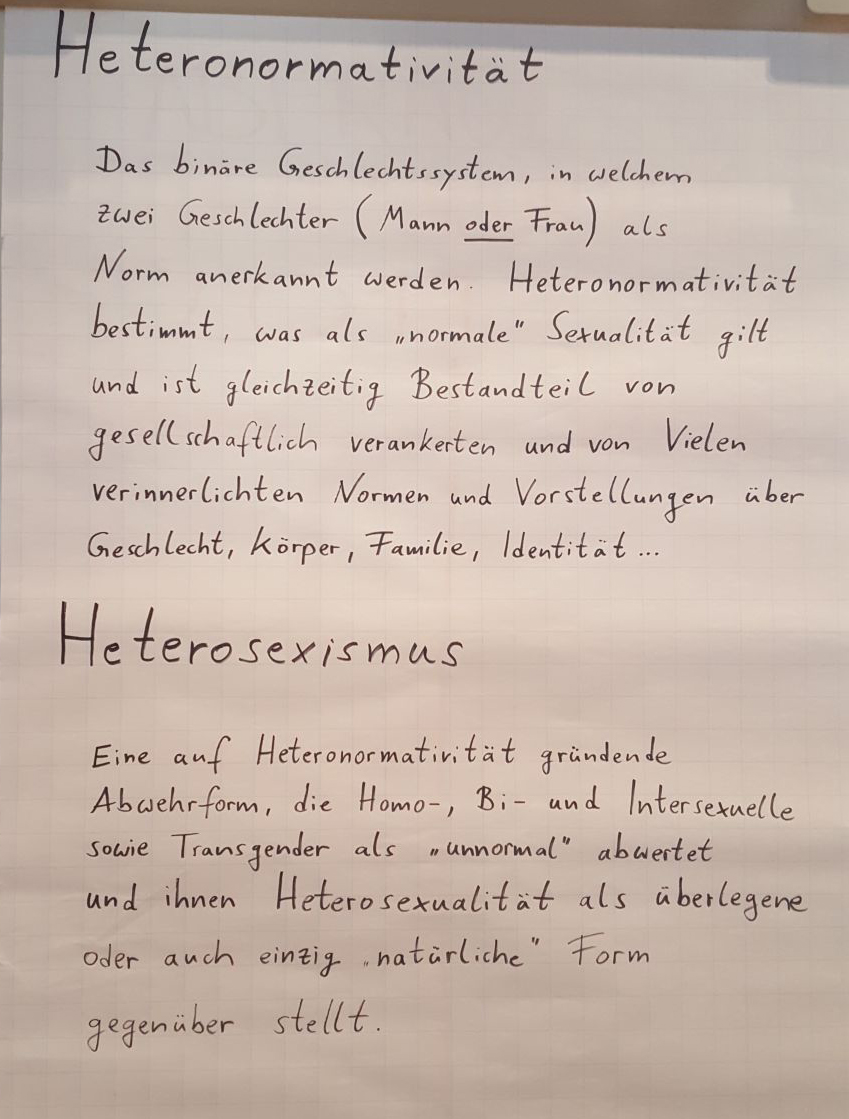 Heteronormativität
Das binäre Geschlechtssystem, in welchem
zwei Geschlechter (Mann oder Frau) als
Norm anerkannt werden. Heteronormativität
bestimmt, was als „normale" Sexualität gilt
und ist gleichzeitig Bestandteil von
gesellschaftlich verankerten und von Vielen
verinnerlichten Normen und Vorstellungen über
Geschlecht, Körper, Familie, Identität...
Heterosexismus
Eine auf Heteronormativität gründende
Abwehrform, die Homo-, Bi- und Intersexuelle
sowie Transgender als „unnormal" abwertet
und ihnen Heterosexualität als überlegene
oder auch einzig „natürliche" Form
gegenüber stellt.